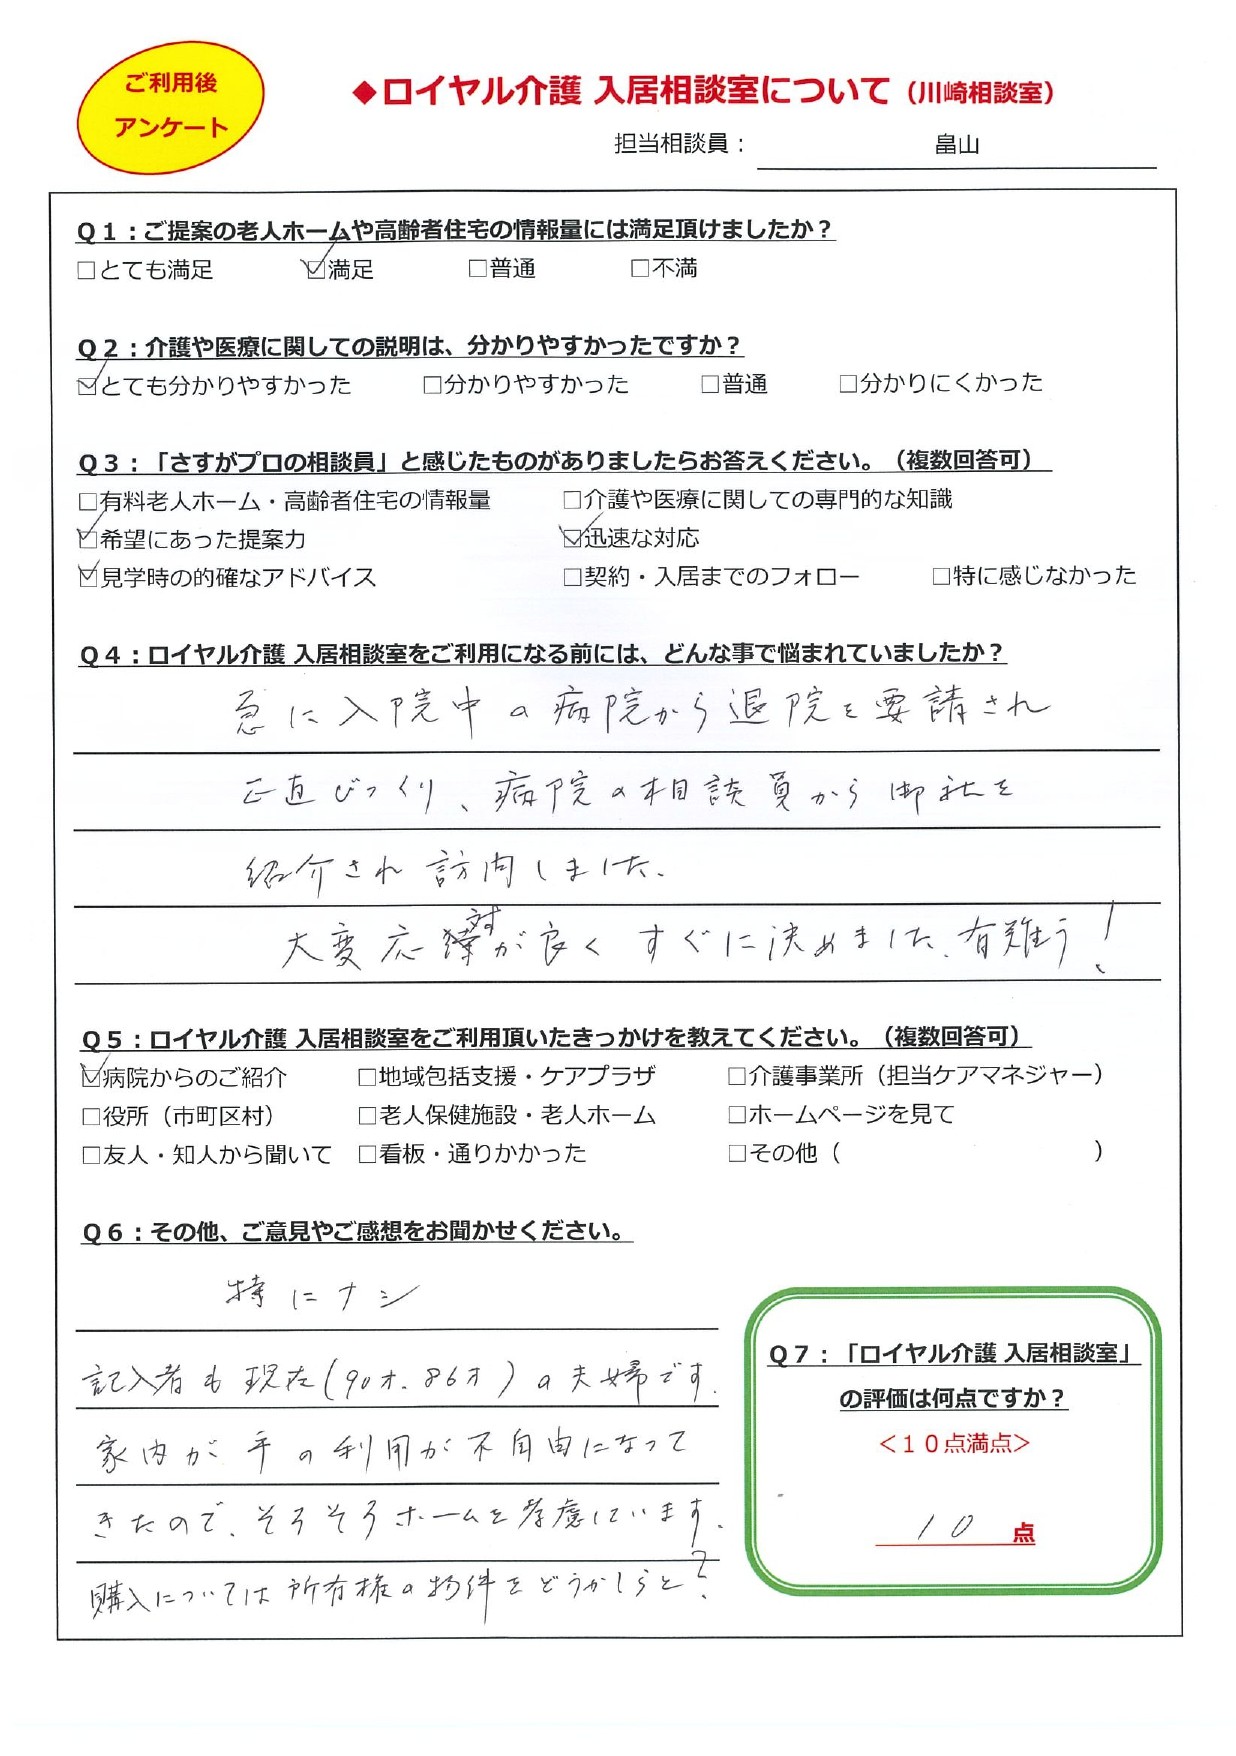 ご利用後
アンケート
◆ロイヤル介護 入居相談室について（川崎相談室）
担当相談員： 畠山
Ｑ１：ご提案の老人ホームや高齢者住宅の情報量には満足頂けましたか？
□とても満足 ☑満足 □普通 □不満
Ｑ２：介護や医療に関しての説明は、分かりやすかったですか？
☑とても分かりやすかった □分かりやすかった □普通 □分かりにくかった
Ｑ３：「さすがプロの相談員」と感じたものがありましたらお答えください。（複数回答可）
□有料老人ホーム・高齢者住宅の情報量 □介護や医療に関しての専門的な知識
☑希望にあった提案力 ☑迅速な対応
☑見学時の的確なアドバイス □契約・入居までのフォロー □特に感じなかった
Ｑ４：ロイヤル介護 入居相談室をご利用になる前には、どんな事で悩まれていましたか？
急に入院中の病院から退院を要請され
正直びっくり、病院の相談員から御社を
紹介され訪問しました。
大変応対が良くすぐに決めました、有難う！
Ｑ５：ロイヤル介護 入居相談室をご利用頂いたきっかけを教えてください。（複数回答可）
☑病院からのご紹介 □地域包括支援・ケアプラザ □介護事業所（担当ケアマネジャー）
□役所（市町区村） □老人保健施設・老人ホーム □ホームページを見て
□友人・知人から聞いて □看板・通りかかった □その他（ ）
Ｑ６：その他、ご意見やご感想をお聞かせください。
特にナシ
記入者も現在(90才、86才)の夫婦です。
家内が手の利用が不自由になって
きたので、そろそろホームを考慮しています。
購入については所有権の物件をどうかしらと？
Ｑ７：「ロイヤル介護 入居相談室」
の評価は何点ですか？
＜１０点満点＞
10 点